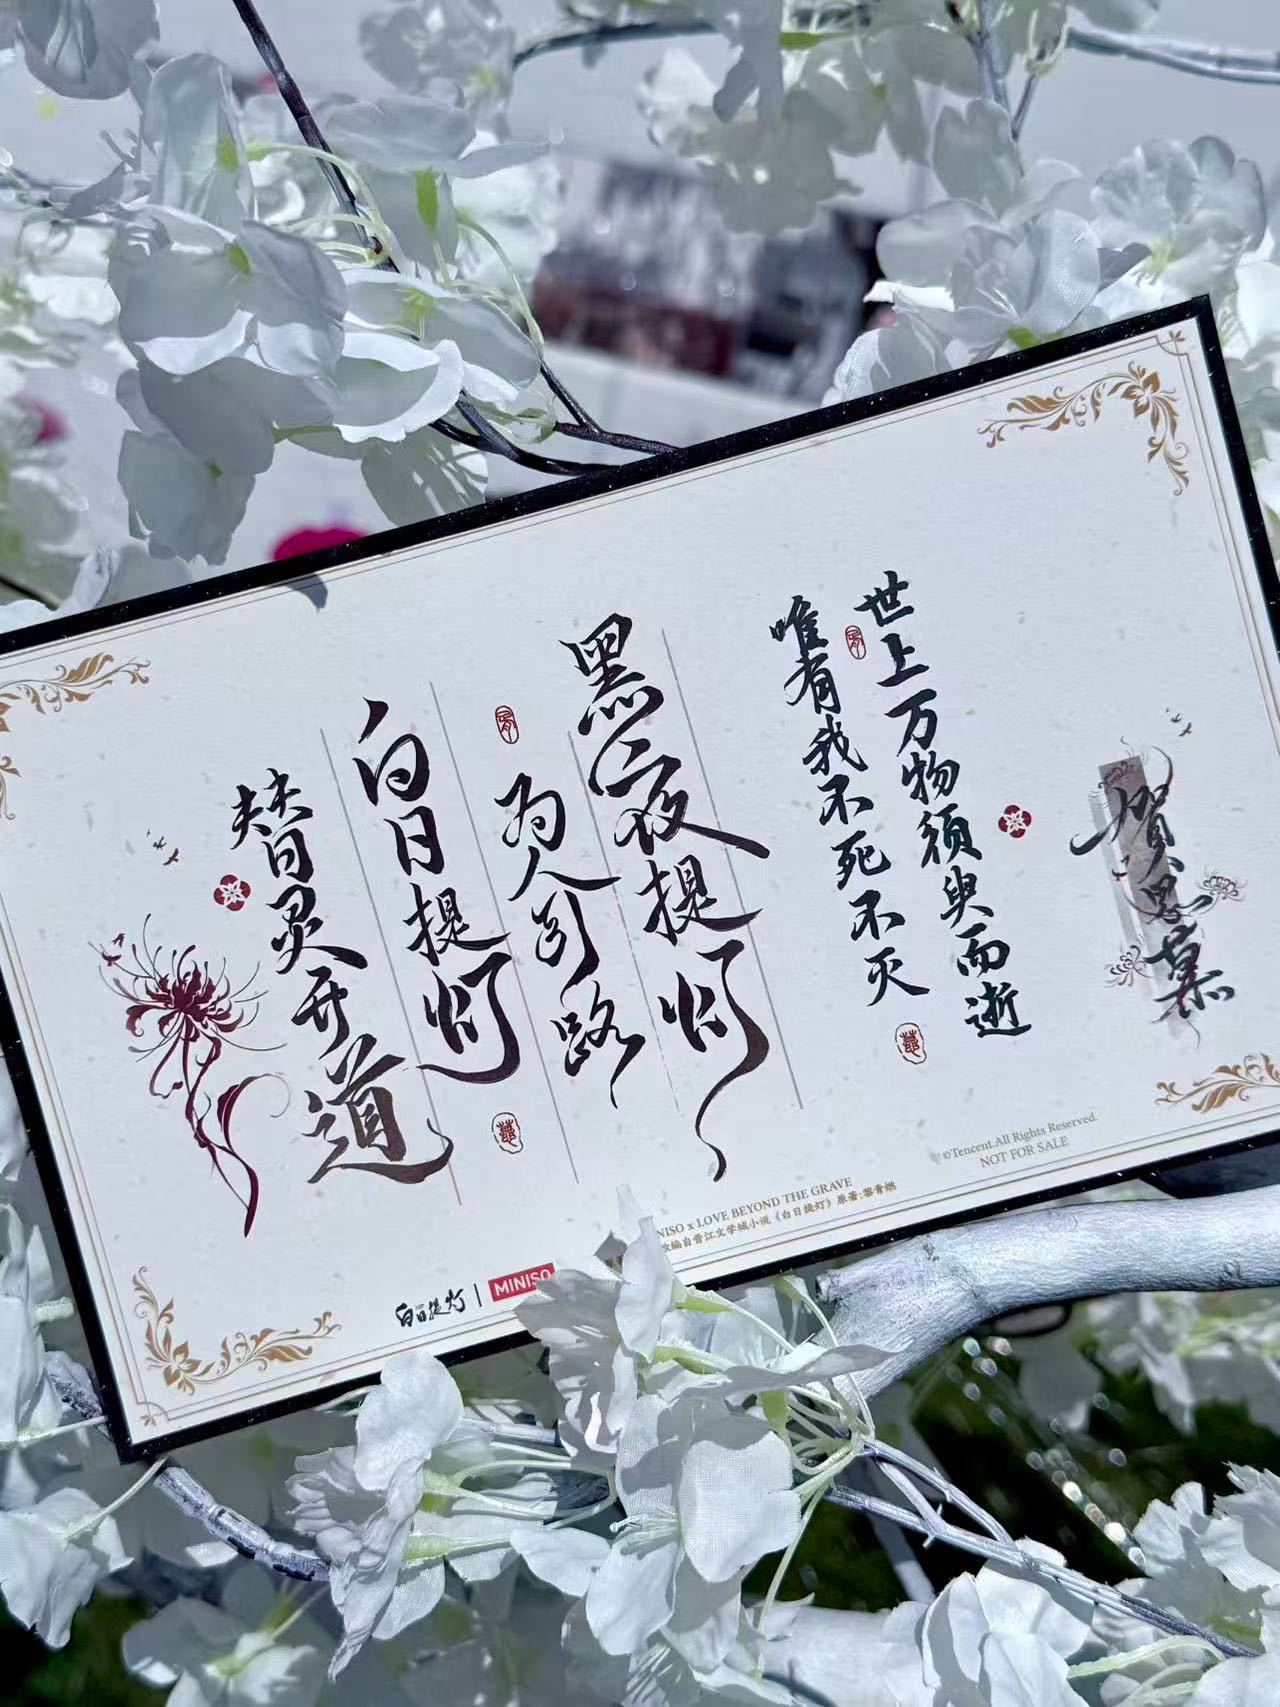 贺思慕
世上万物须臾而逝
唯有我不死不灭
黑夜提灯
为人引路
白日提灯
替百灵开道
©Tencent.All Rights Reserved.
NOT FOR SALE
NISO x LOVE BEYOND THE GRAVE
改编自晋江文学城小说《白日提灯》原著:黎青燃
白日提灯 | MINISO